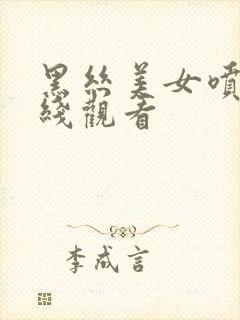 黑絲美女噴
綫觀看
李成言